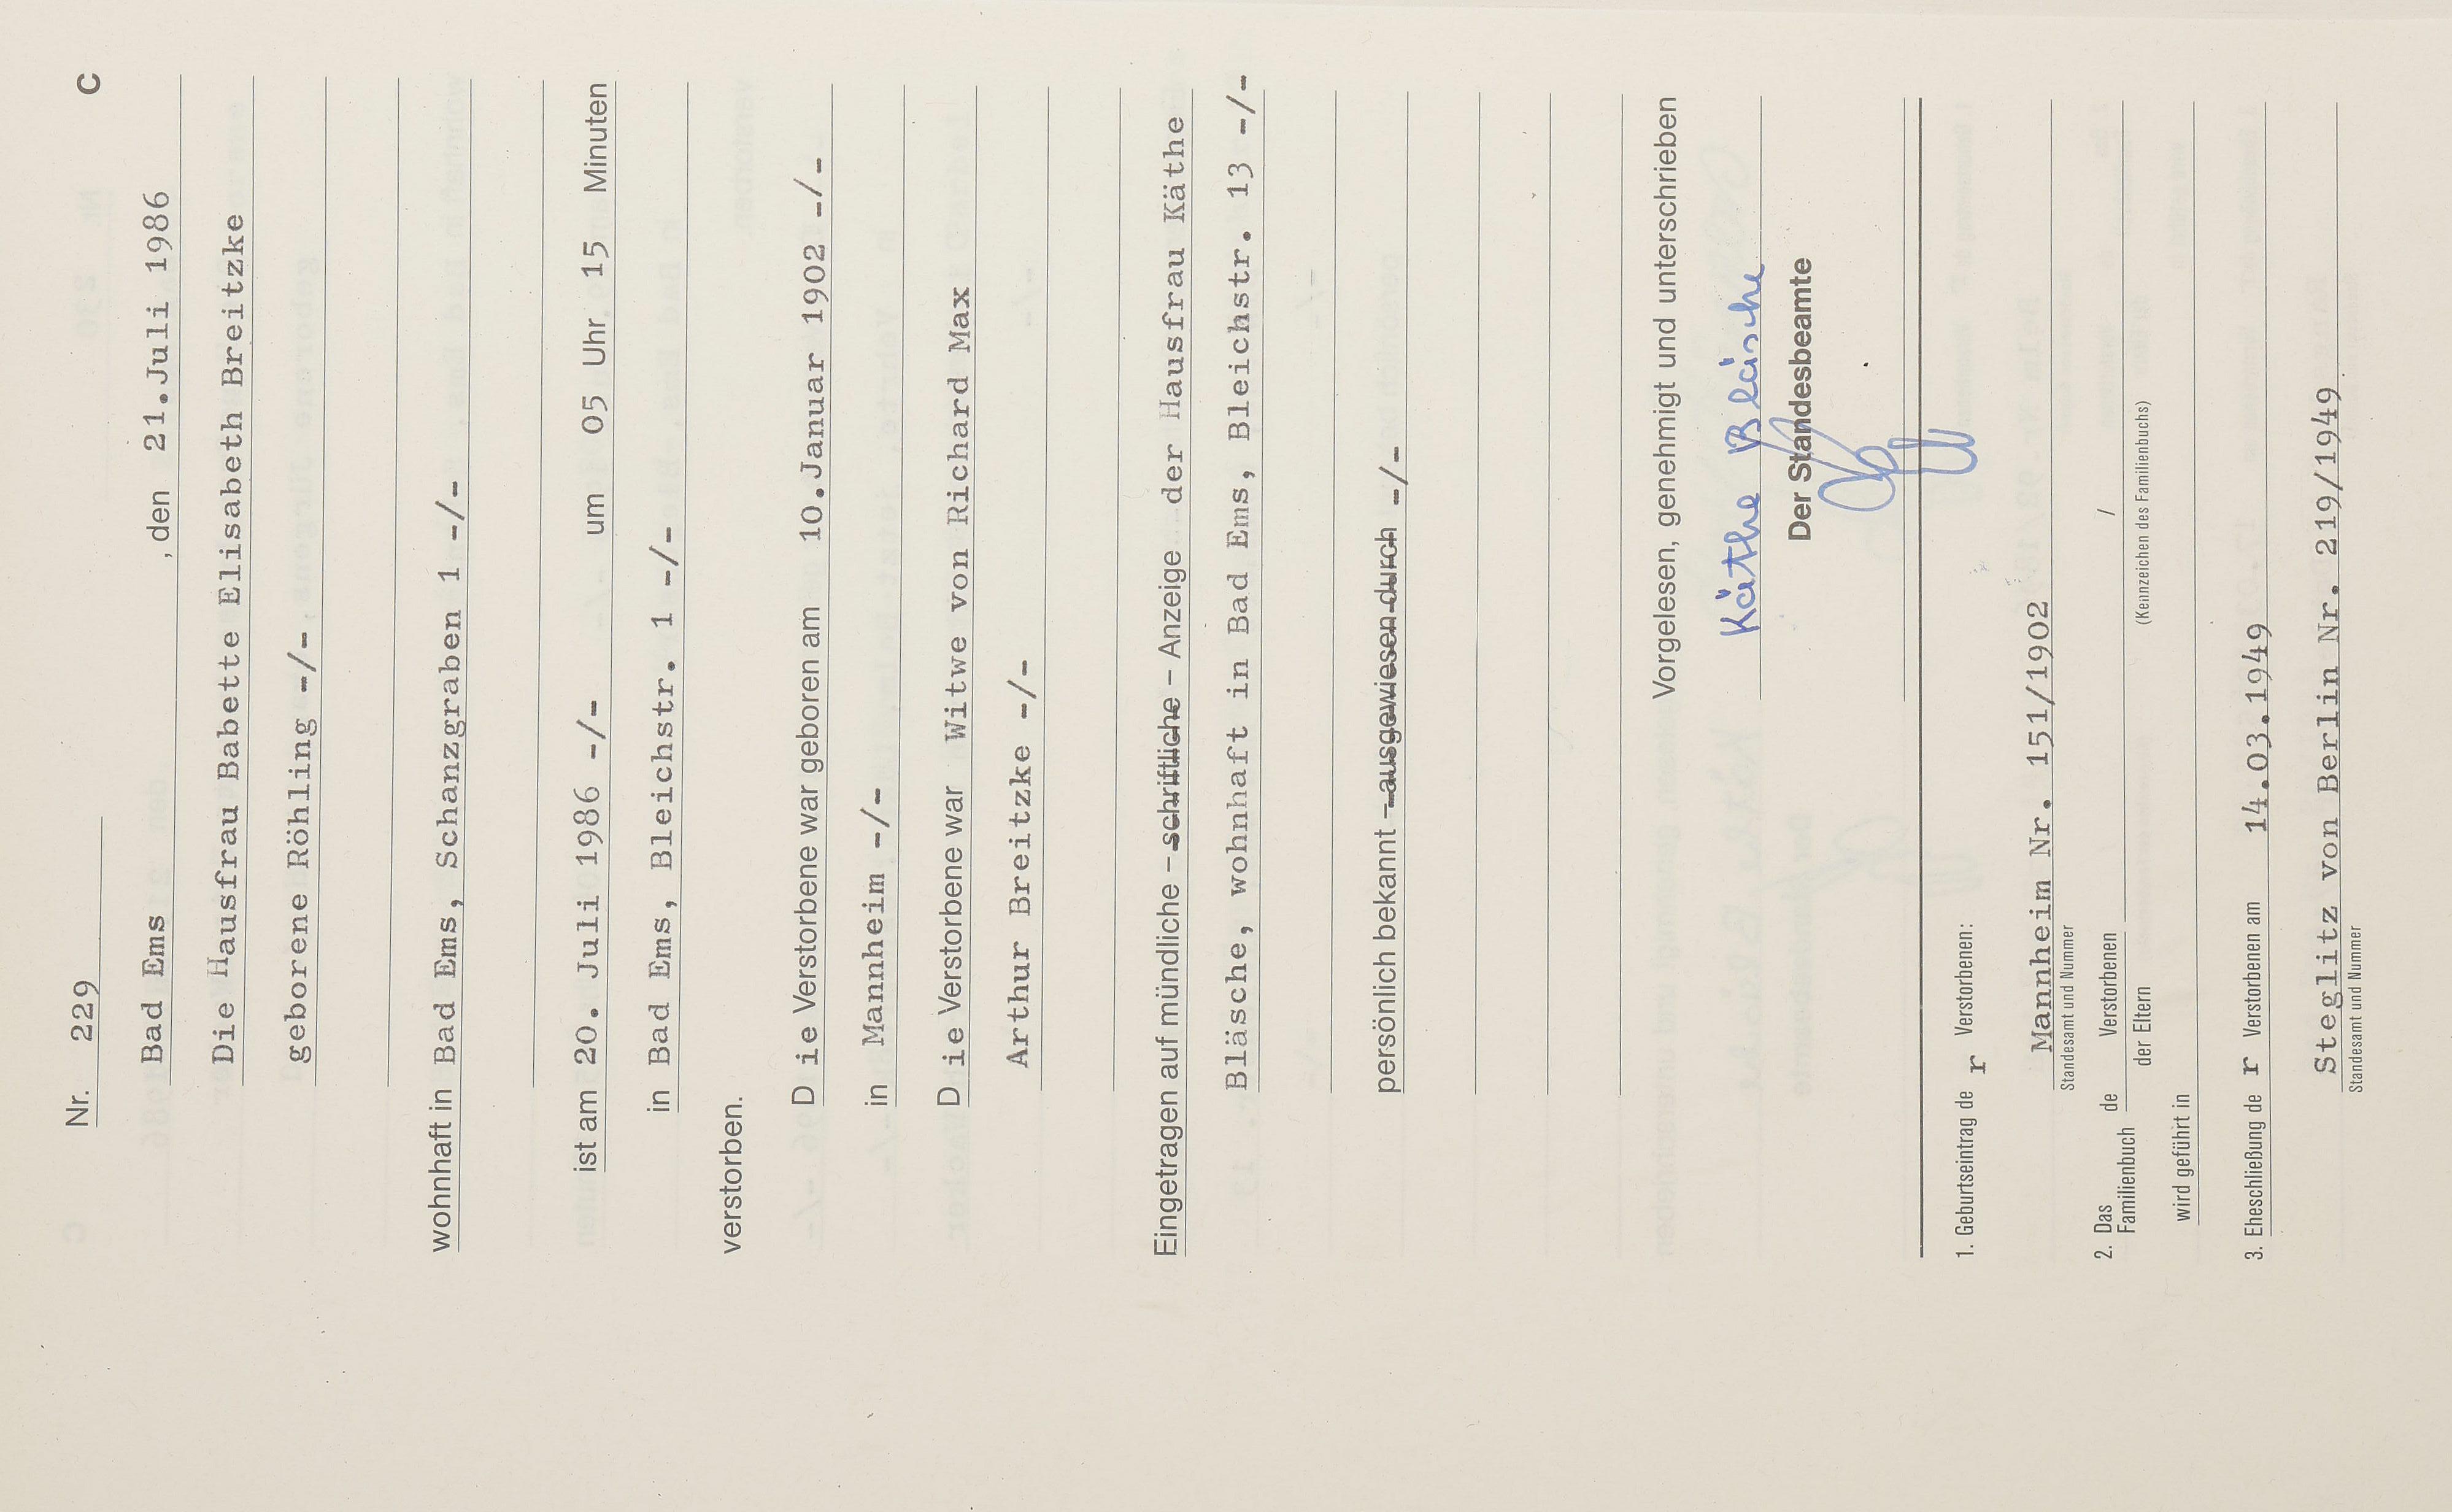 Nr. 229 C
Bad Ems , den 21.Juli 1986
Die Hausfrau Babette Elisabeth Breitzke
geborene Röhling -/-
wohnhaft in Bad Ems, Schanzgraben 1 -/-
ist am 20. Juli 1986 -/- um 05 Uhr 15 Minuten
in Bad Ems, Bleichstr. 1 -/-
verstorben.
D ie Verstorbene war geboren am 10.Januar 1902 -/-
in Mannheim -/-
D ie Verstorbene war Witwe von Richard Max
Arthur Breitzke -/-
Eingetragen auf mündliche – schriftliche – Anzeige der Hausfrau Käthe
Bläsche, wohnhaft in Bad Ems, Bleichstr. 13 -/-
persönlich bekannt – ausgewiesen durch -/-
Vorgelesen, genehmigt und unterschrieben
Käthe Bläsche
Der Standesbeamte
1. Geburtseintrag de r Verstorbenen:
Mannheim Nr. 151/1902
Standesamt und Nummer
2. Das Familienbuch de Verstorbenen /
der Eltern (Kennzeichen des Familienbuchs)
wird geführt in
3. Eheschließung de r Verstorbenen am 14.03.1949
Steglitz von Berlin Nr. 219/1949
Standesamt und Nummer